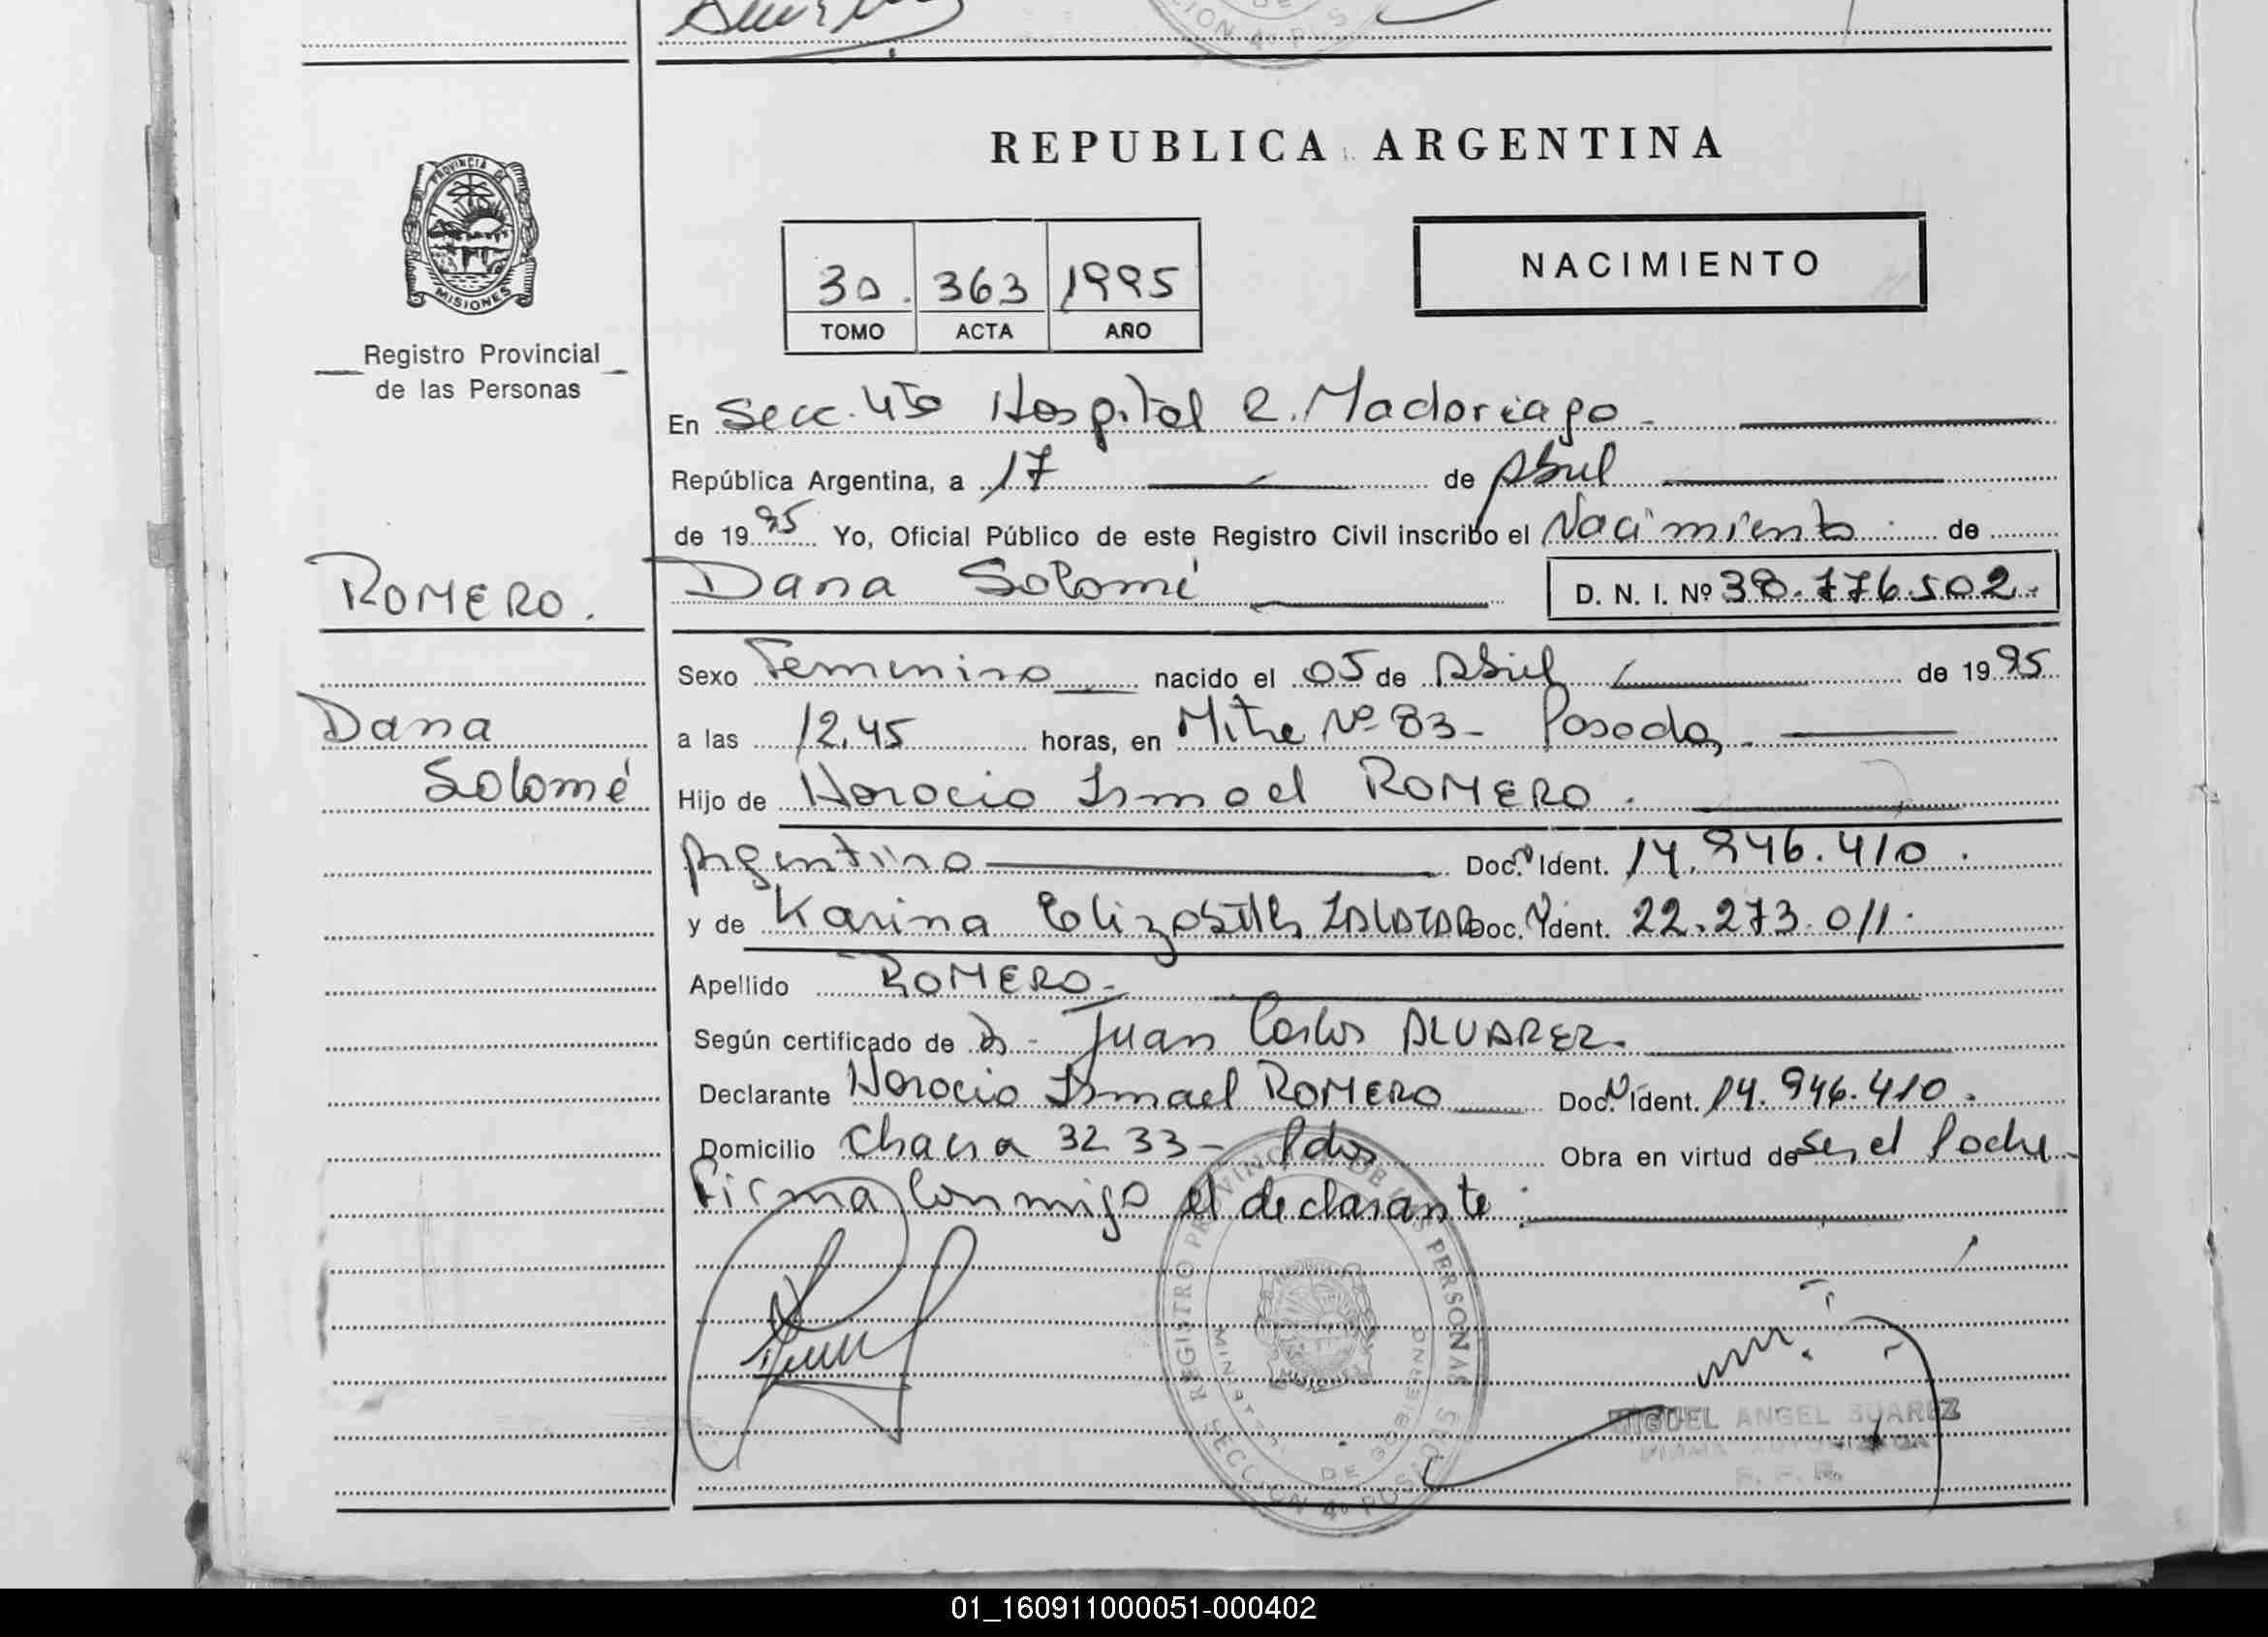 REPUBLICA ARGENTINA
PROVINCIA DE
MISIONES
Registro Provincial
de las Personas
30. 363 1995
TOMO ACTA AÑO
NACIMIENTO
En Secc. 4ta Hospital R. Madariaga -
República Argentina, a 17 de Abril
de 1995 Yo, Oficial Público de este Registro Civil inscribo el Nacimiento de
ROMERO.
Dana Salomé D. N. I. Nº 38.776.502.
Sexo Femenino nacido el 05 de Abril de 1995
Dana
a las 12,45 horas, en Mitre Nº 83 - Posadas
Salomé
Hijo de Horacio Ismael ROMERO.
Argentino Doc. Ident. 14.946.410.
y de Karina Elizabeth Doc. Ident. 22.273.011.
Apellido ROMERO-
Según certificado de Dr - Juan Carlos ALVAREZ-
Declarante Horacio Ismael ROMERO Doc. Ident. 14.946.410.
Domicilio Chacra 32 33 - Pdas Obra en virtud de Ser el Padre
Firma Conmigo el declarante:
REGISTRO PROVINCIAL DE LAS PERSONAS
MINISTERIO DE GOBIERNO
SECCION 4º POSADAS
MIGUEL ANGEL SUAREZ
FIRMA AUTORIZADA
01_160911000051-000402